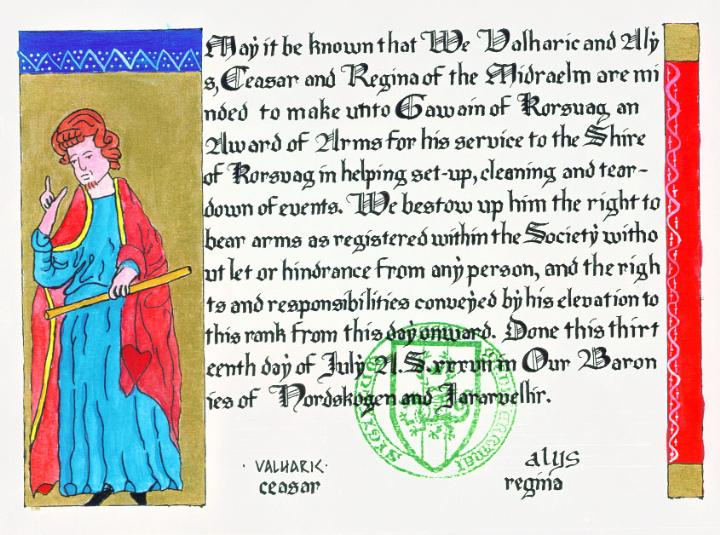 May it be known that We Valharic and Aly
s, Ceasar and Regina of the Midraelm are mi
nded to make unto Gawain of Korsvag an
Award of Arms for his service to the Shire
of Korsvag in helping set-up, cleaning and tear-
down of events. We bestow up him the right to
bear arms as registered within the Society witho
ut let or hindrance from any person, and the righ
ts and responsibilities conveyed by his elevation to
this rank from this day onward. Done this thirt
eenth day of July A.S. xxxvii in Our Baron
ies of Nordskogen and Jararvellir.
· VALHARIC ·
ceasar
alys
regina